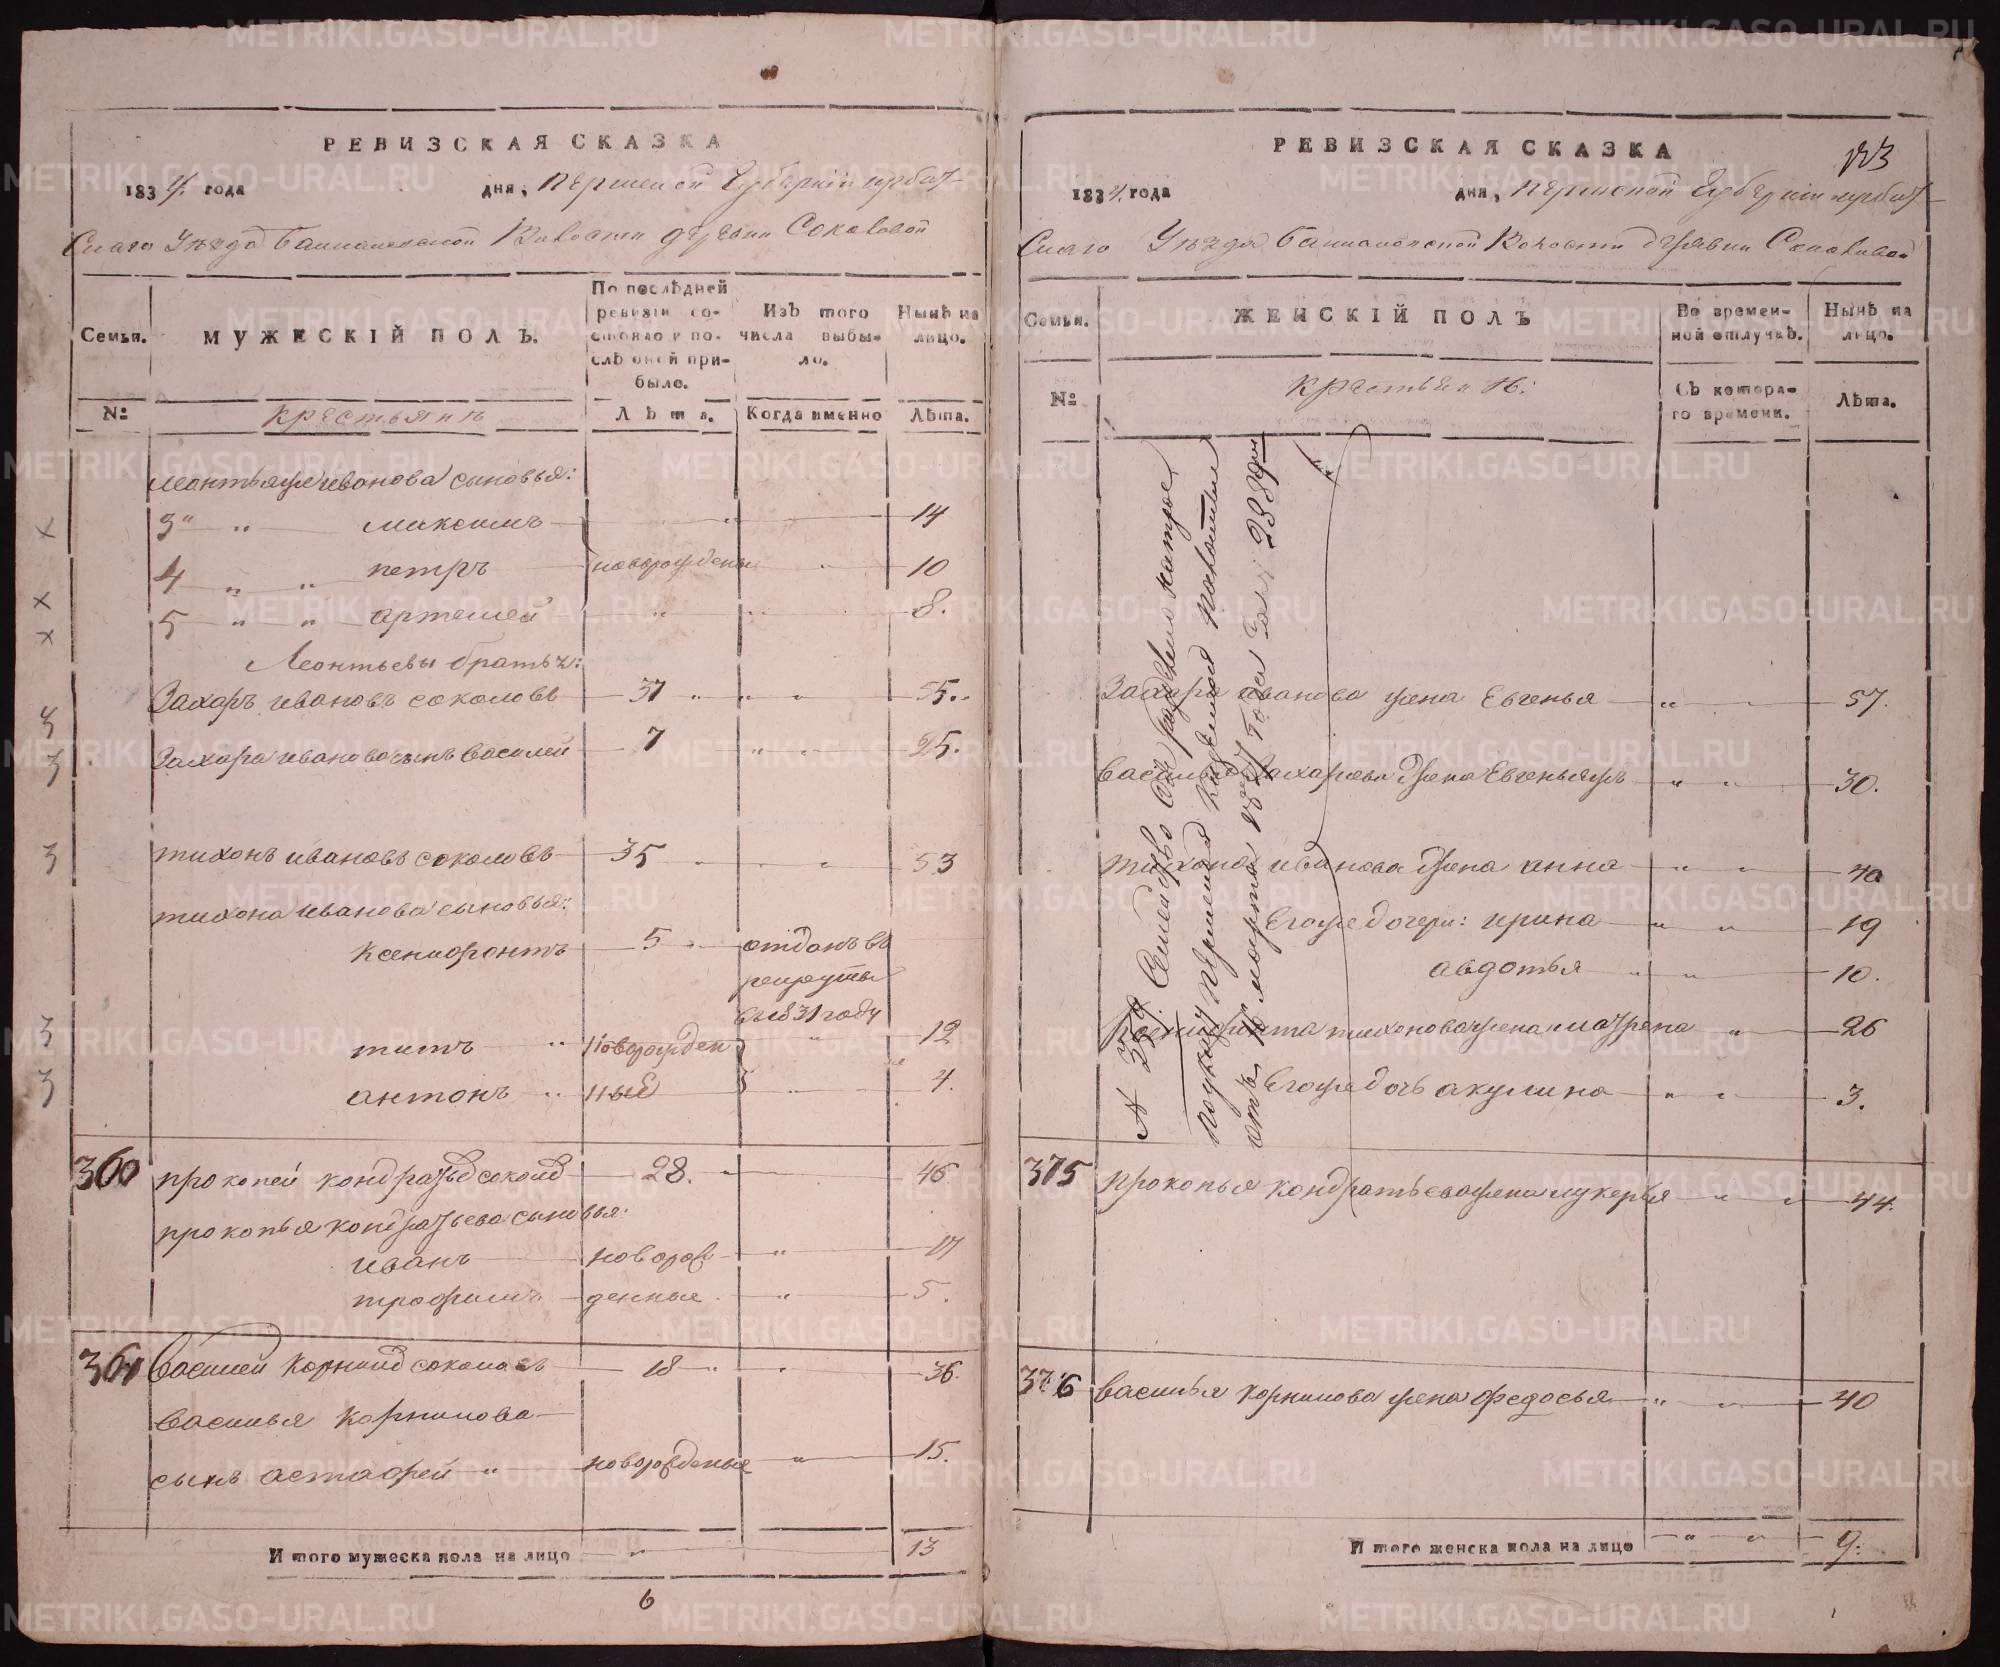 РЕВИЗСКАЯ СКАЗКА
1834 года дня, Пермской Губернии ирбит-
скаго Уезда волости деревни Соколовой
Семьи. МУЖЕСКІЙ ПОЛЪ. По послѣдней ревизіи состояло и послѣ оной прибыло. Изъ того числа выбыло. Нынѣ на лицо.
№ крестьянъ Лѣта. Когда именно Лѣта.
Леонтья же иванова сыновья:
3 " максимъ " 14
4 " " петръ новорождены " 10
5 " " артемей " " 8.
Леонтьевы братья:
Захаръ ивановъ соколовъ 37 " " " 55.
Захара иванова сынъ василей 7 " " 25.
тихонъ ивановъ соколовъ 35 " " 53
тихона иванова сыновья:
ксенофонтъ 5 отданъ въ
рекруты
въ 1831 году
титъ " новорожден " 12
антонъ " ные " 4.
360 прокопей кондратьевъ соколовъ 28. " 46.
прокопья кондратьева сыновья:
иванъ новорож- " 17
трофимъ денные " 5.
361 василей корниловъ соколовъ 18 " " 36.
василья корнилова
сынъ астафей " новорожденые " 15.
Итого мужеска пола на лицо " 13
6
РЕВИЗСКАЯ СКАЗКА
1834 года дня, пермской Губернии ирбит-
скаго Уезда волости деревни Соколовой
Семьи. ЖЕНСКІЙ ПОЛЪ Во временной отлучкѣ. Нынѣ на лицо.
№ крестьян Съ котораго времени. Лѣта.
№ 359. Семейство
отъ 16 марта
Захара иванова жена Евгенья " 57.
василья Захарова жена Евгенья жъ " " 30.
тихона иванова жена анна " " 40
Его же дочери: ирина " " 19
авдотья " " 10.
ксенофонта тихонова жена матрена " 26
Его же дочь акулина " " 3.
375 прокопья кондратьева жена лукерья " " 44.
376 василья корнилова жена федосья " " 40
Итого женска пола на лицо " " 9.
METRIKI.GASO-URAL.RU